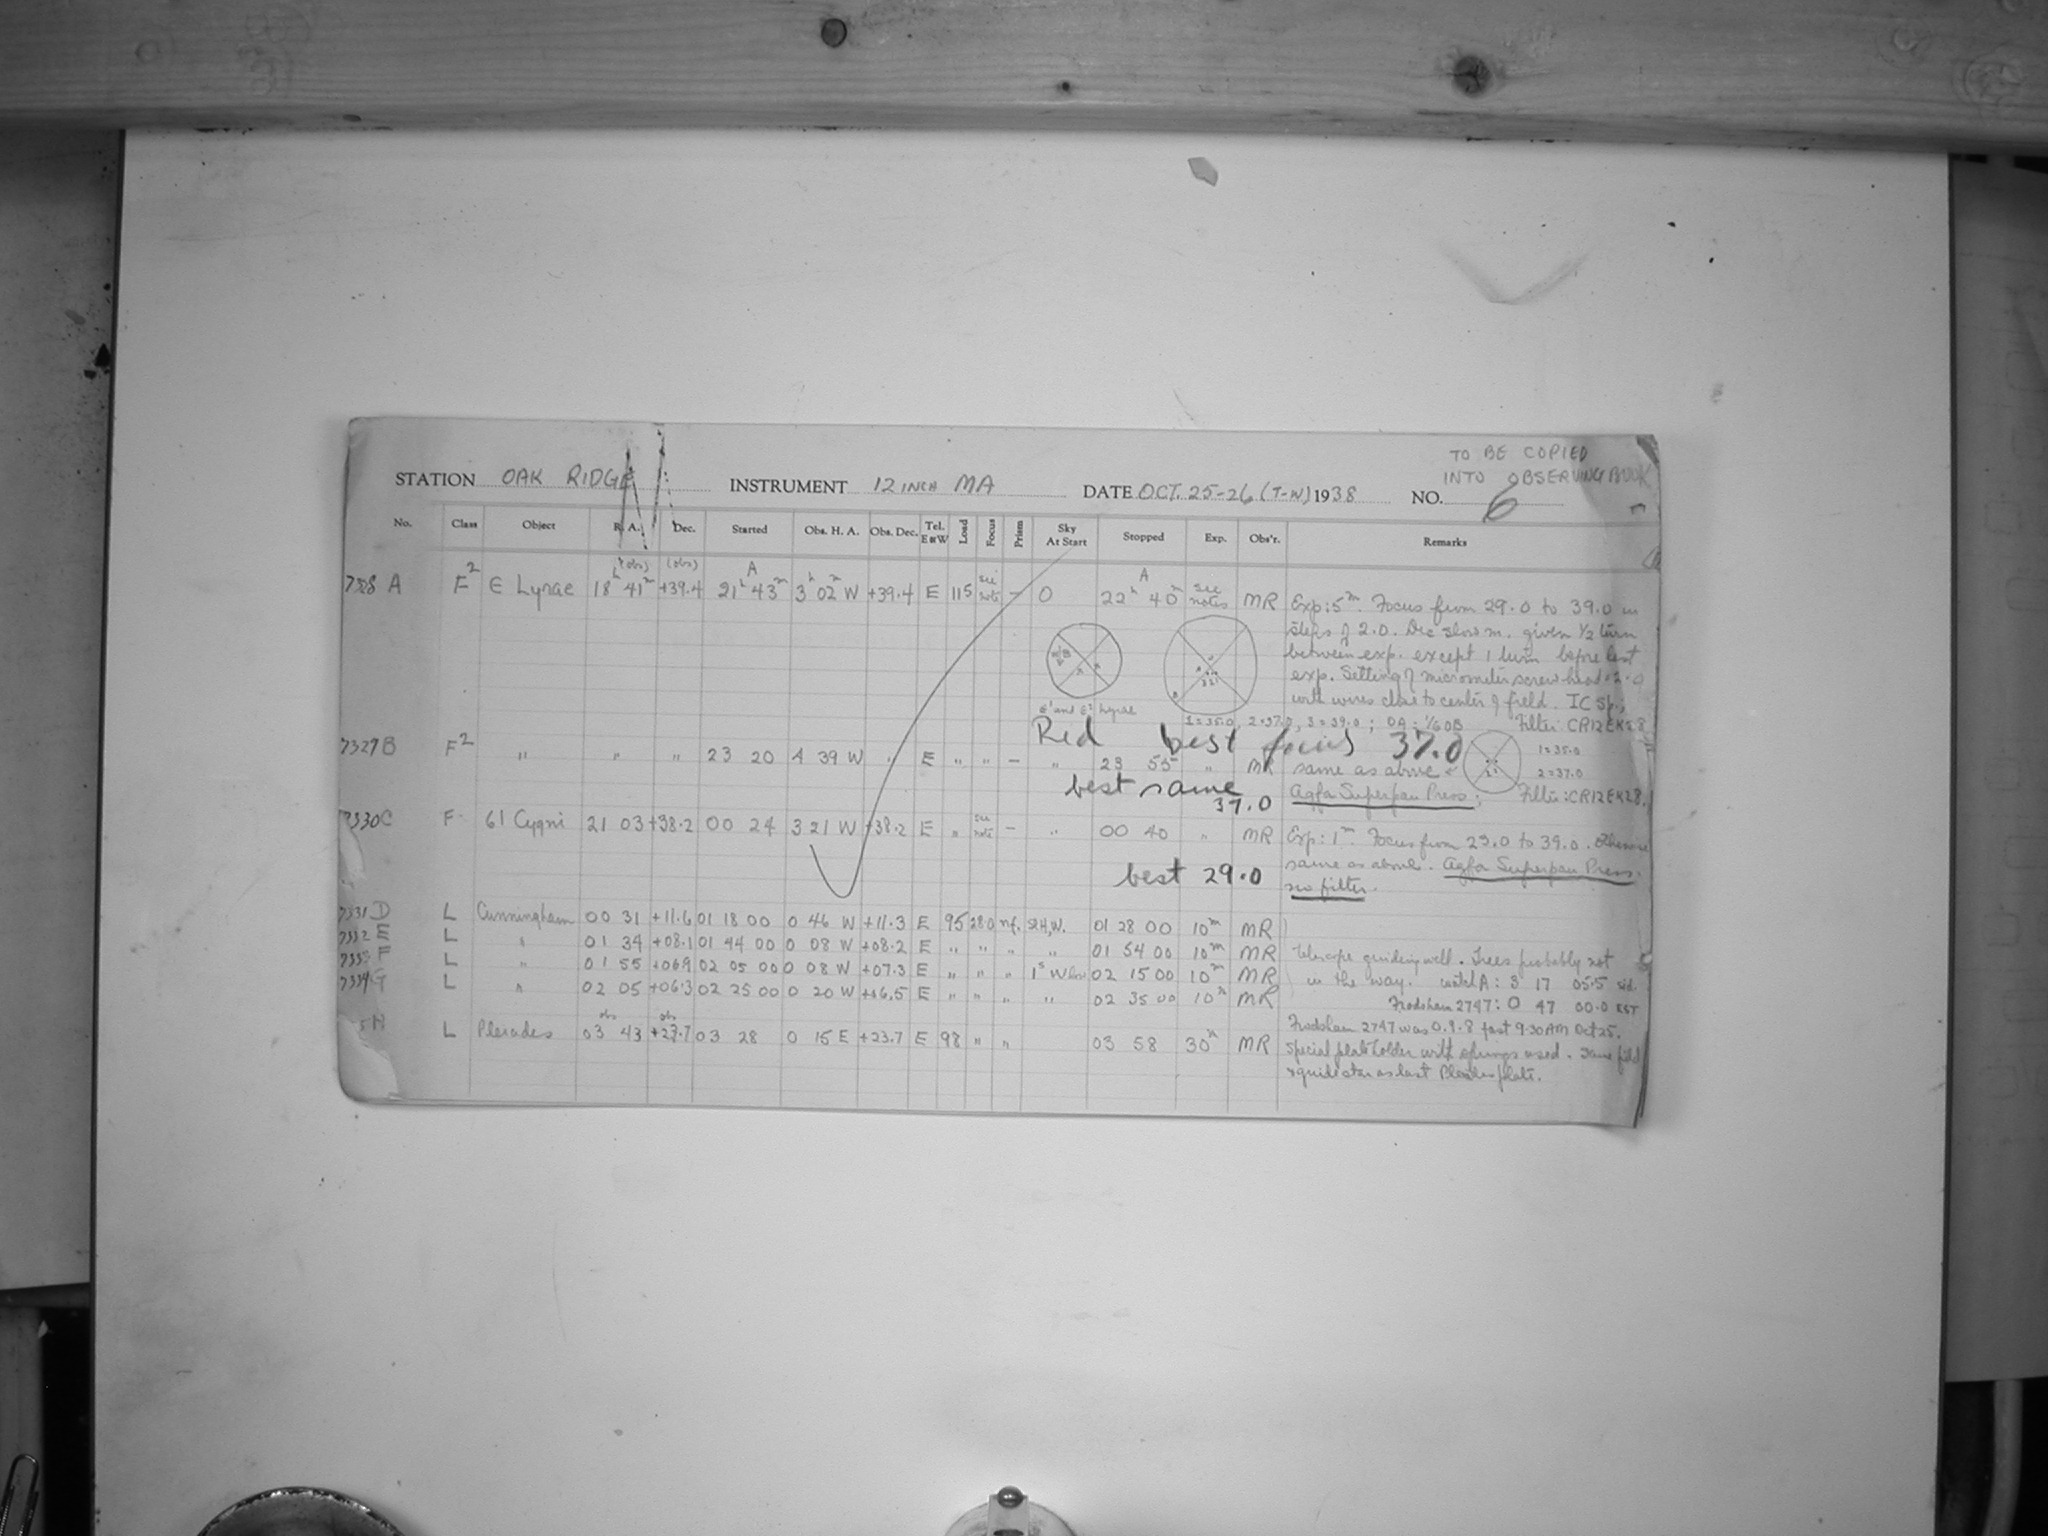 TO BE COPIED
INTO OBSERVING BOOK
STATION OAK RIDGE INSTRUMENT 12 INCH MA DATE OCT. 25-26 (T-W) 1938 NO. 6
No. Class Object R. A. Dec. Started Obs. H. A. Obs. Dec. Tel. E or W Load Focus Prism Sky At Start Stopped Exp. Obs'r. Remarks
(obs) (obs)
7328 A F2 ε Lyrae 18h 41m +39.4 A 21h 43m 3h 02m W +39.4 E 115 see note — 0 A 22h 40m see notes MR Exp: 5m. Focus from 29.0 to 39.0 in
steps of 2.0. Dec slow m. given 1/2 turn
between exp. except 1 turn before last
exp. Setting of micrometer screw head 2.0
with wires close to center of field. IC Sp.,
ε1 and ε2 Lyrae 1=35.0, 2=37.0, 3=39.0; OA = 1/6 OB Filter: CR12EK28
Red best focus 37.0
7329 B F2 " " " 23 20 4 39 W " E " " — " 23 55 " MR same as above 1=35.0
2=37.0
best same 37.0
Agfa Superpan Press; Filter: CR12EK28.
7330 C F 61 Cygni 21 03 +38.2 00 24 3 21 W +38.2 E " see note — " 00 40 " MR Exp: 1m. Focus from 29.0 to 39.0. Otherwise
same as above. Agfa Superpan Press.
best 29.0
no filter.
7331 D L Cunningham 00 31 +11.6 01 18 00 0 46 W +11.3 E 95 28.0 nf. 01 28 00 10m MR
7332 E L " 01 34 +08.1 01 44 00 0 08 W +08.2 E " " " " 01 54 00 10m MR Telescope guiding well. Trees probably not
7333 F L " 01 55 +06.9 02 05 00 0 08 W +07.3 E " " " 02 15 00 10m MR in the way. watch A: 3 17 05.5 sid.
7334 G L " 02 05 +06.3 02 25 00 0 20 W +06.5 E " " " " 02 35 00 10m MR Frodsham 2747: 0 47 00.0 EST
obs obs
5 H L Pleiades 03 43 +23.7 03 28 0 15 E +23.7 E 98 " " 03 58 30m MR Frodsham 2747 was 0.9.8 fast 9:30 AM Oct 25.
Special plateholder with springs used. Same field
& guide star as last Pleiades plate.